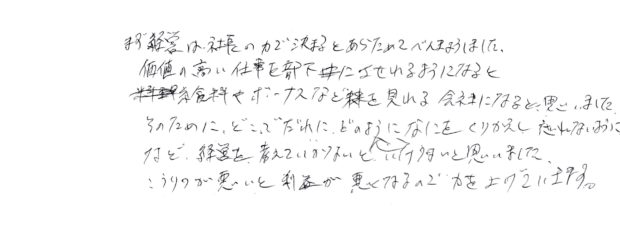 まず経営は、社長の力で決まるとあらためてべんきょうしました。
価値の高い仕事を部下にさせれるようになると
給料やボーナスなど夢を見れる会社になると、思いました。
そのために、どこでだれに、どのようになにをくりかえし忘れないように
など、経営を考えていかないと、いけないと思いました。
こうりつが悪いと利益が悪くなるので力を上げていきます。